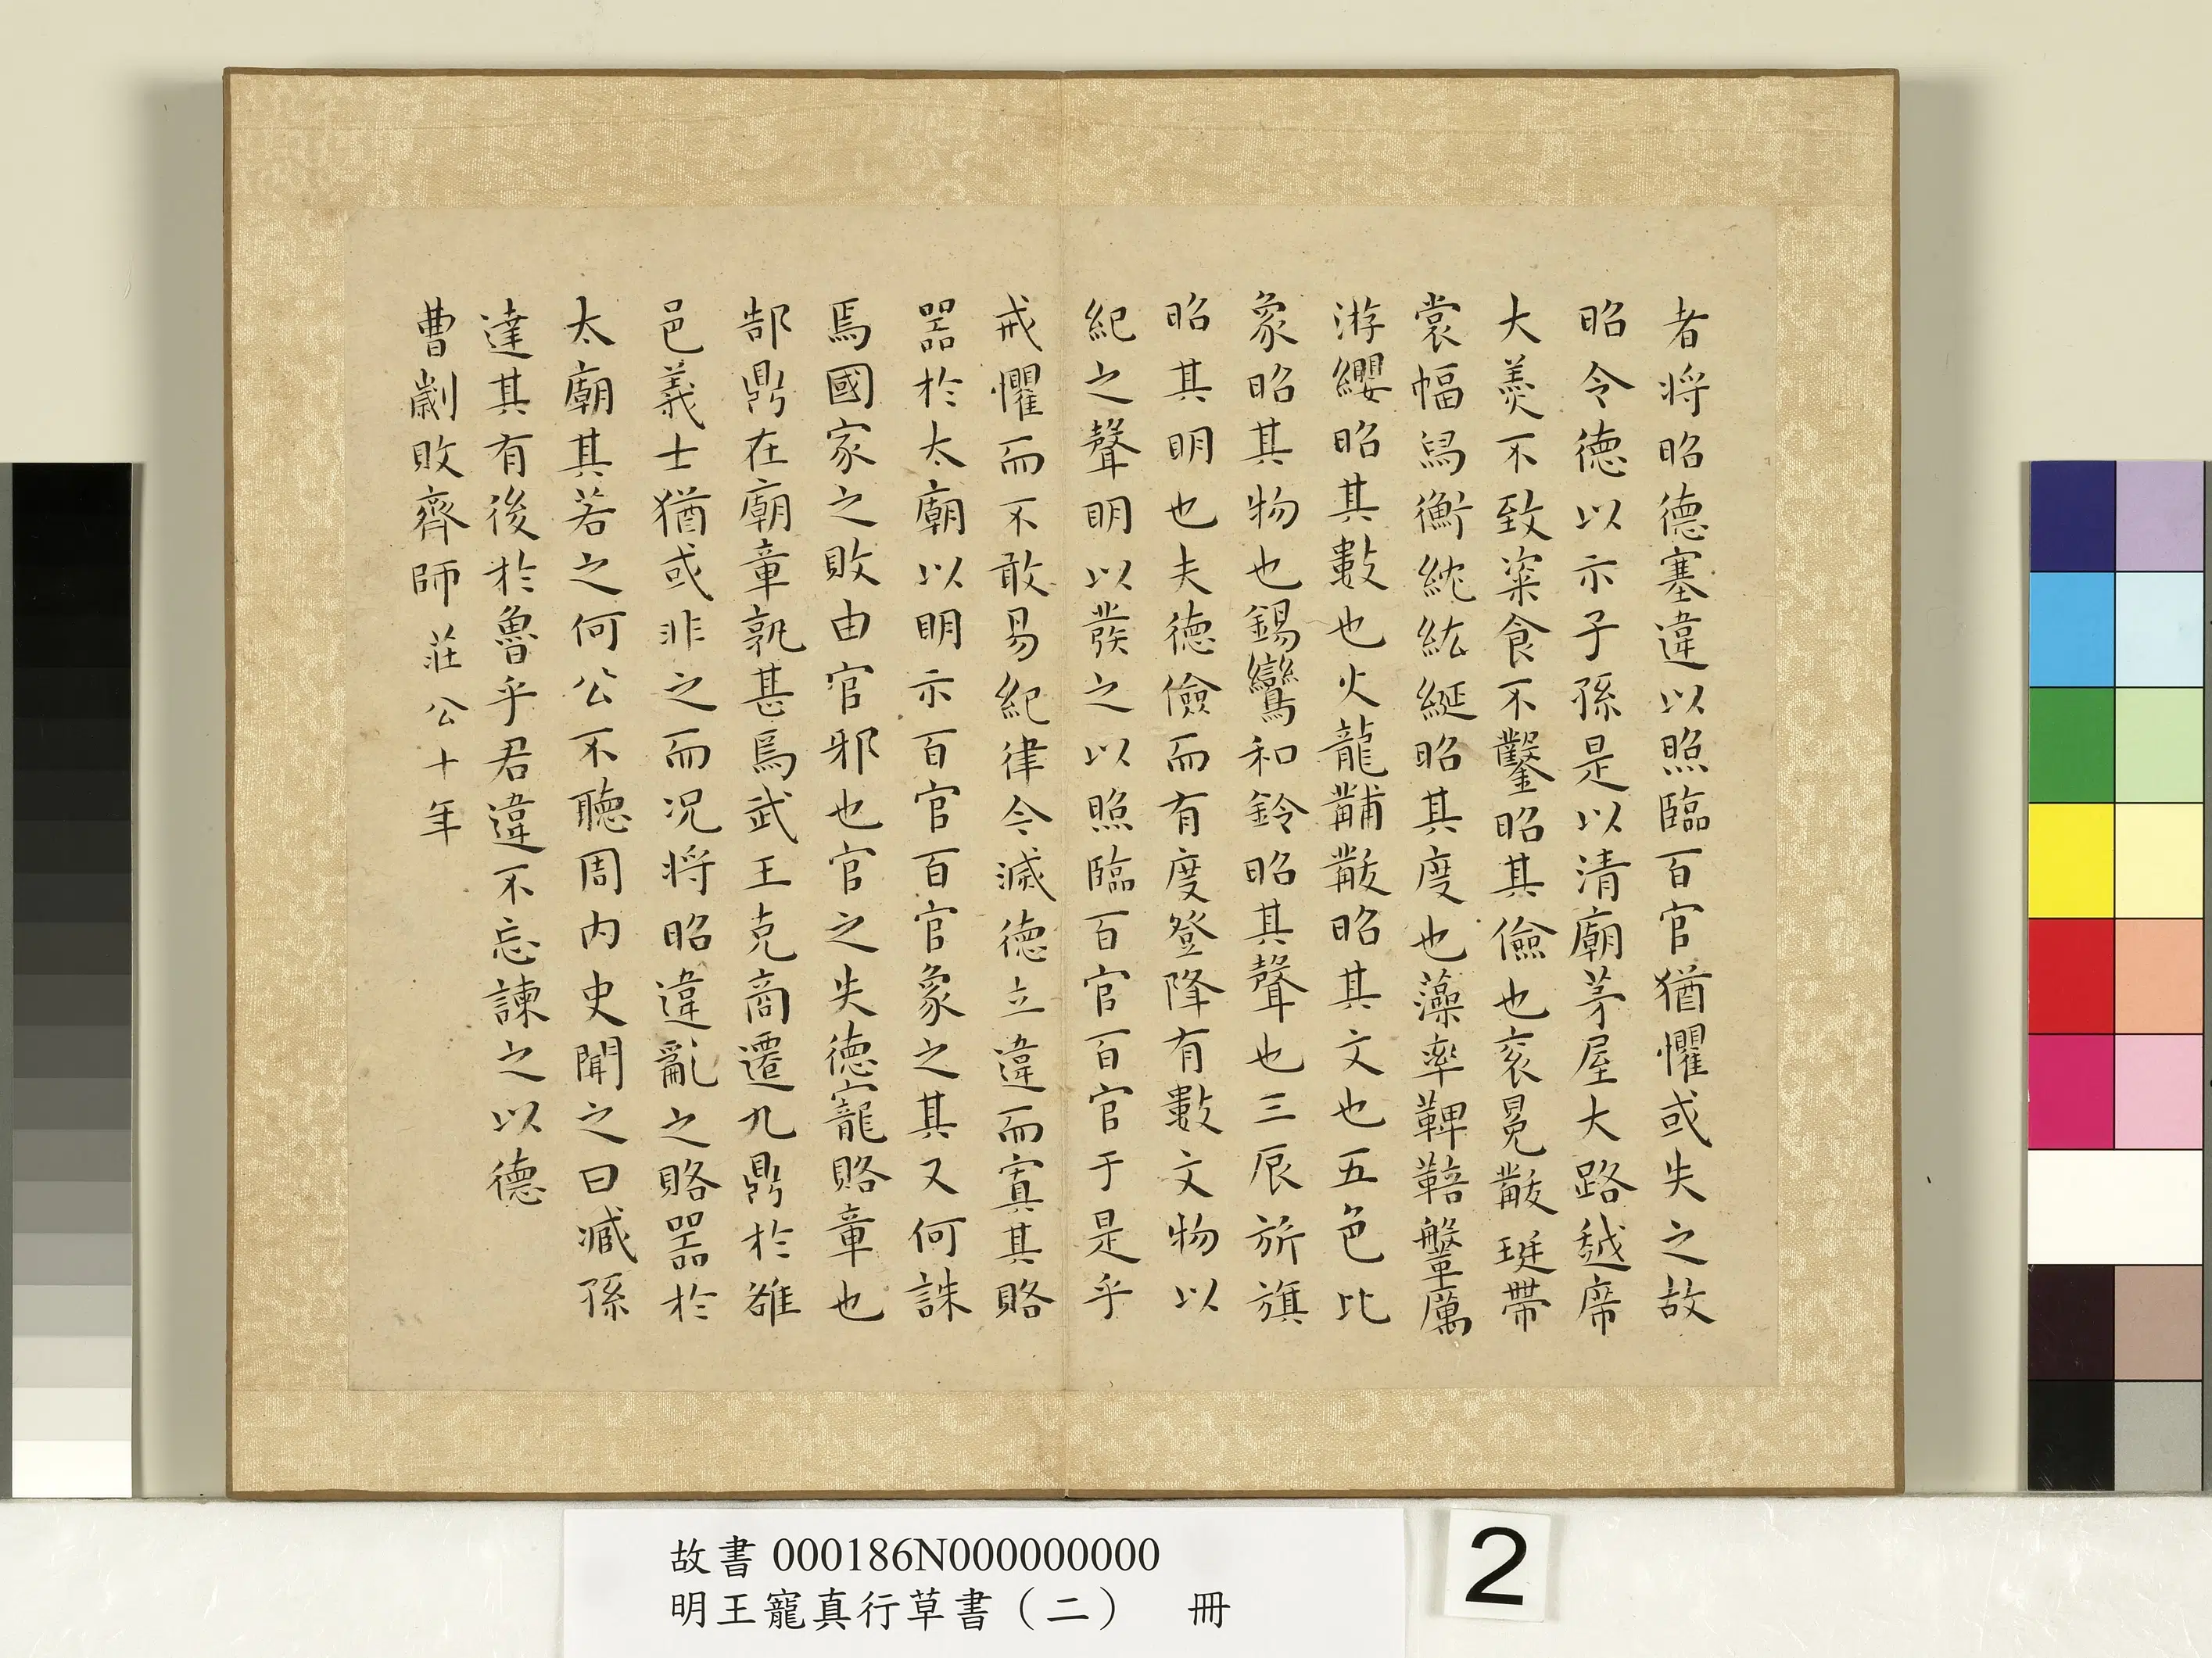 者將昭德塞違以照臨百官猶懼或失之故
昭令德以示子孫是以清廟茅屋大路越席
大羹不致粢食不鑿昭其儉也袞冕黻珽帶
裳幅舄衡紞紘綖昭其度也藻率鞞鞛鞶厲
游纓昭其數也火龍黼黻昭其文也五色比
象昭其物也錫鸞和鈴昭其聲也三辰旂旗
昭其明也夫德儉而有度登降有數文物以
紀之聲明以發之以照臨百官百官于是乎
戒懼而不敢易紀律今滅德立違而寘其賂
器於太廟以明示百官百官象之其又何誅
焉國家之敗由官邪也官之失德寵賂章也
郜鼎在廟章孰甚焉武王克商遷九鼎於雒
邑義士猶或非之而況將昭違亂之賂器於
太廟其若之何公不聽周內史聞之曰臧孫
達其有後於魯乎君違不忘諫之以德
曹劌敗齊師 莊公十年
故書 000186N000000000
明王寵真行草書（二） 冊
2